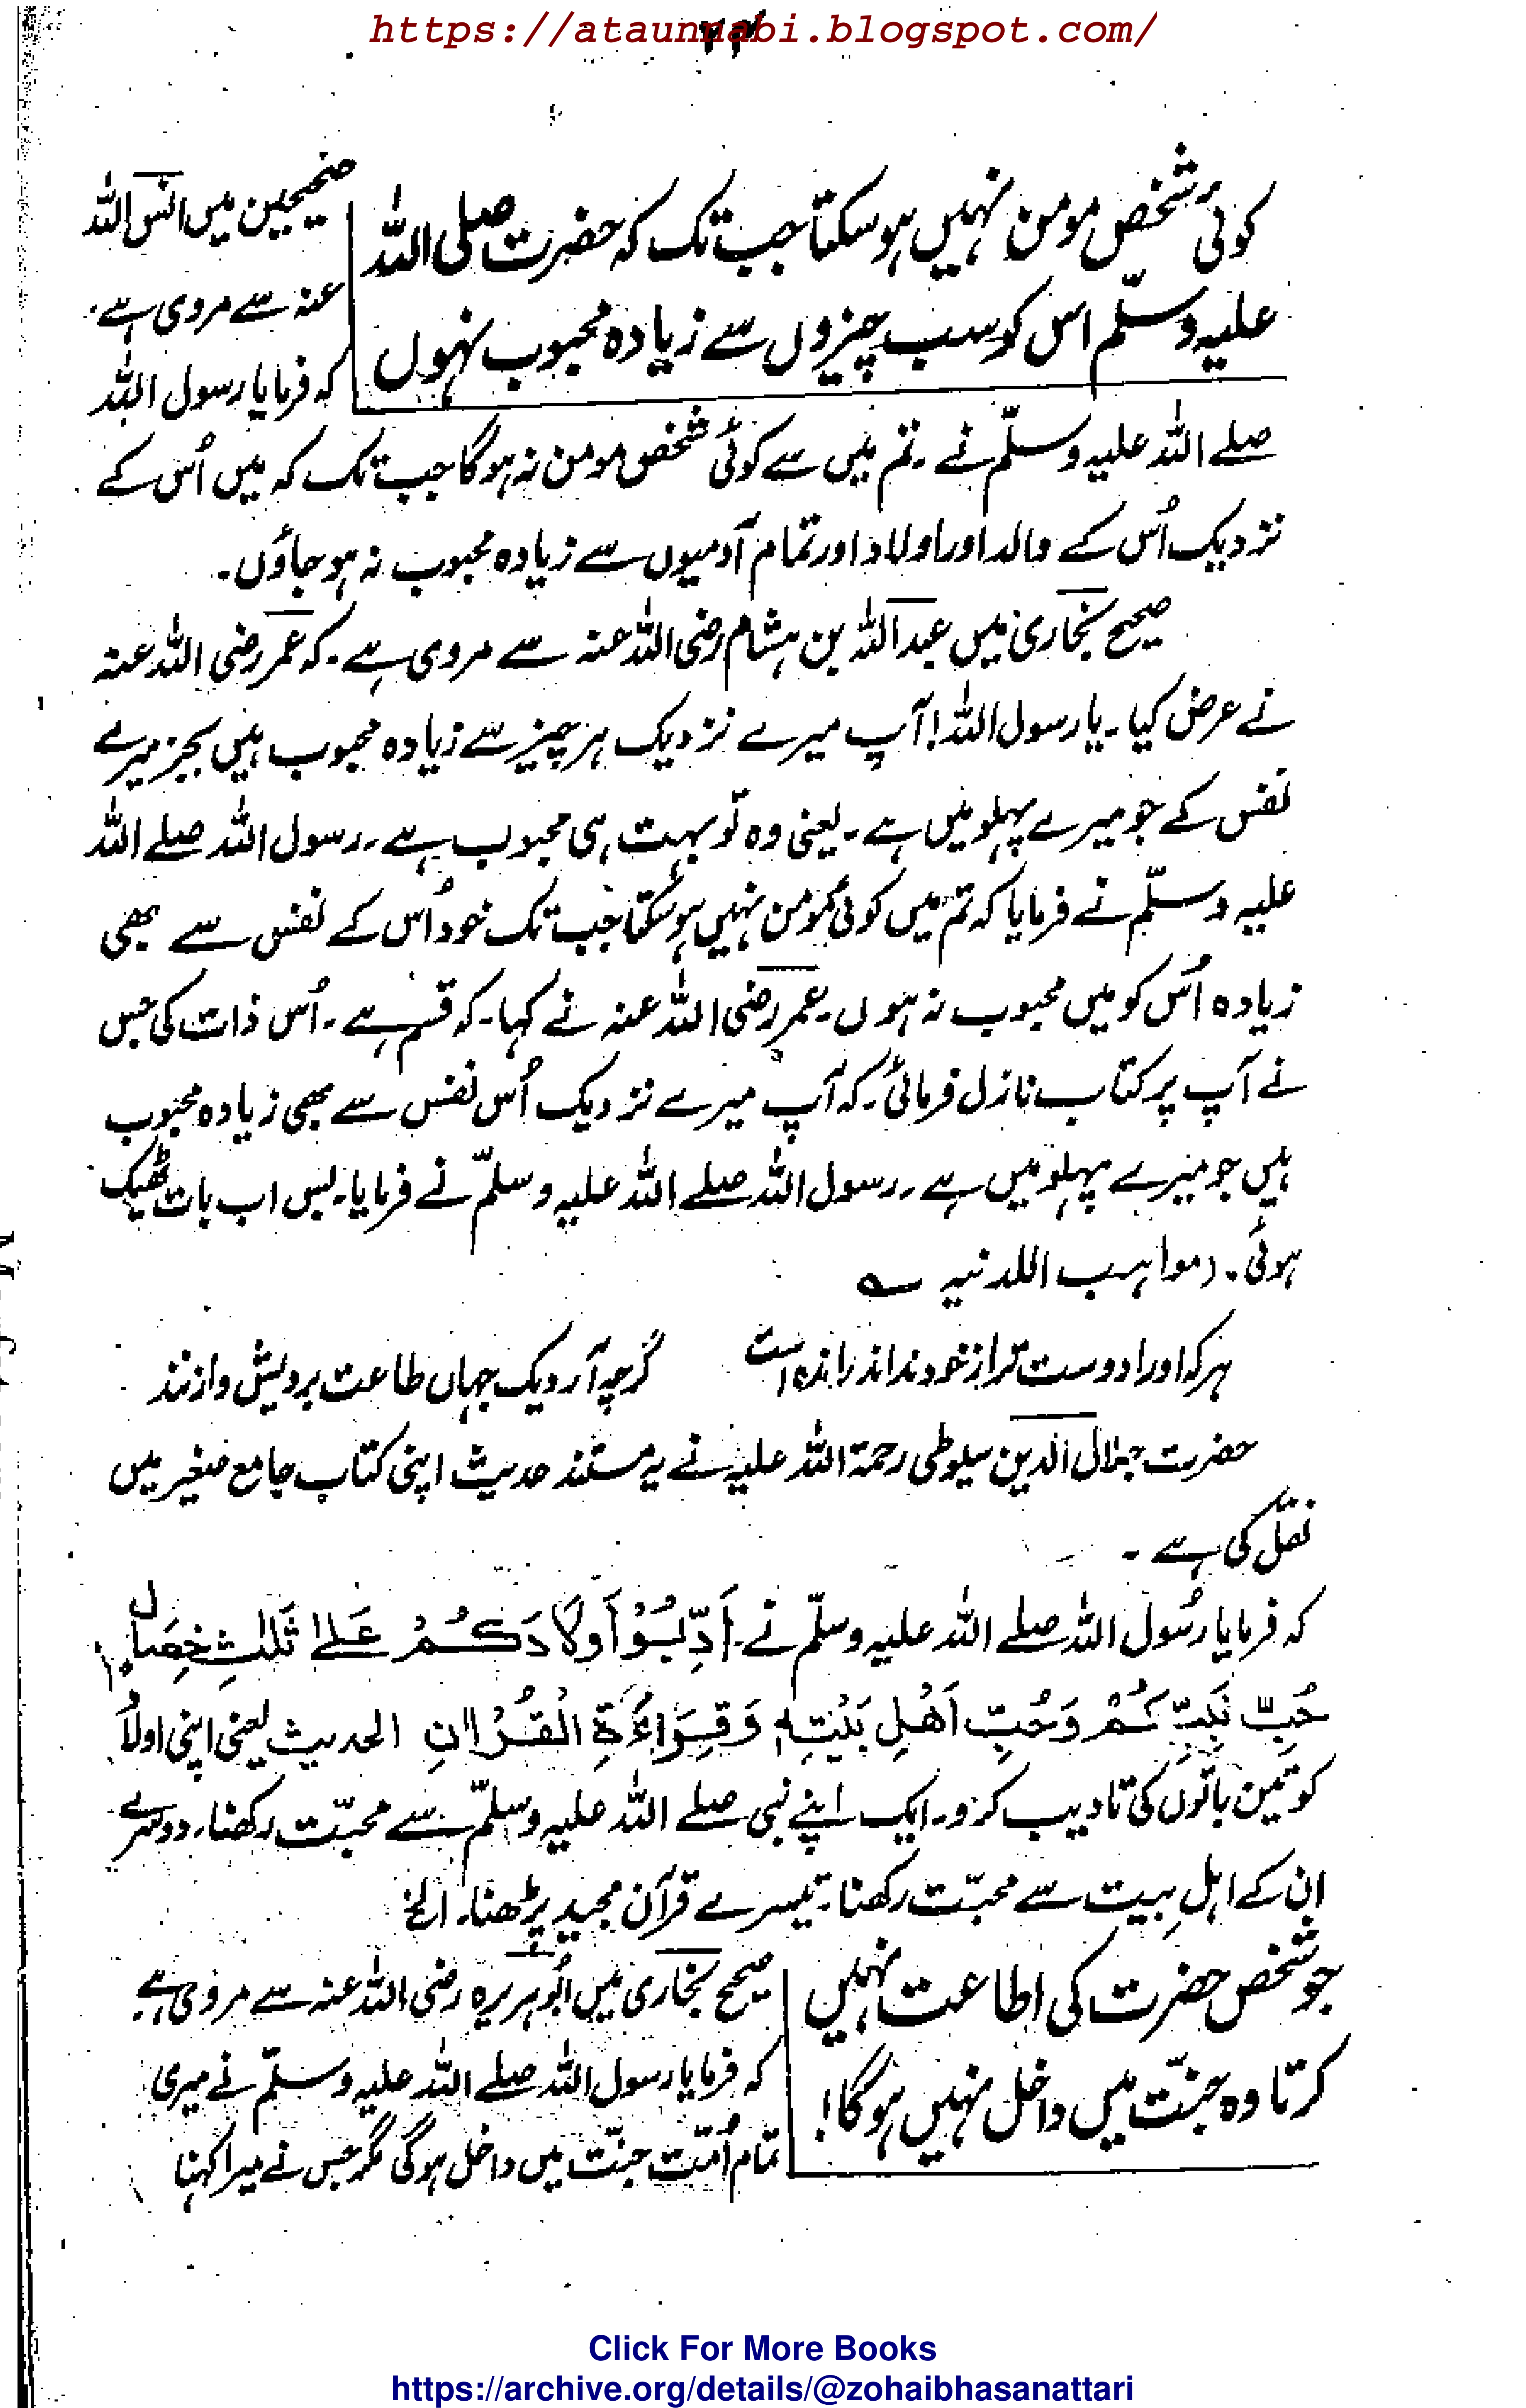 https://ataunnabi.blogspot.com/
کوئی شخص مومن نہیں ہو سکتا جب تک کہ حضرت صلی اللہ
علیہ وسلّم اس کو سب چیزوں سے زیادہ محبوب نہوں
صحیحین میں انس اللہ
عنہ سے مروی ہے۔
کہ فرمایا رسول اللہ
صلے اللہ علیہ وسلّم نے۔ تم میں سے کوئی شخص مومن نہ ہوگا جب تک کہ میں اُس کے
نزدیک اُس کے والد اور اولاد اور تمام آدمیوں سے زیادہ محبوب نہ ہو جاؤں۔
صحیح بخاری میں عبداللہ بن ہشام رضی اللہ عنہ سے مروی ہے۔ کہ عمر رضی اللہ عنہ
نے عرض کیا۔ یا رسول اللہ! آپ میرے نزدیک ہر چیز سے زیادہ محبوب ہیں بجز میرے
نفس کے جو میرے پہلو میں ہے۔ یعنی وہ تو بہت ہی محبوب ہے۔ رسول اللہ صلے اللہ
علیہ وسلّم نے فرمایا کہ تم میں کوئی مومن نہیں ہو سکتا جب تک خود اُس کے نفس سے بھی
زیادہ اُس کو میں محبوب نہ ہوں۔ عمر رضی اللہ عنہ نے کہا۔ کہ قسم ہے۔ اُس ذات کی جس
نے آپ پر کتاب نازل فرمائی۔ کہ آپ میرے نزدیک اُس نفس سے بھی زیادہ محبوب
ہیں جو میرے پہلو میں ہے۔ رسول اللہ صلے اللہ علیہ وسلّم نے فرمایا۔ بس اب بات ٹھیک
ہوئی۔ (مواہب اللدنیہ ؎
ہر کہ او را دوست تر از خود نداند راندہ است گرچہ آرد یک جہاں طاعت بردیش وازنند
حضرت جلال الدین سیوطی رحمۃ اللہ علیہ نے یہ مستند حدیث اپنی کتاب جامع صغیر میں
نقل کی ہے۔
کہ فرمایا رسُول اللہ صلے اللہ علیہ وسلّم نے۔ اَدِّبُوْا اَوْلَادَكُمْ عَلٰی ثَلٰثِ خِصَالٍ
حُبِّ نَبِیِّكُمْ وَحُبِّ اَهْلِ بَیْتِهٖ وَقِرَاءَةِ الْقُرْاٰنِ الحدیث یعنی اپنی اولاد
کو تین باتوں کی تادیب کرو۔ ایک اپنے نبی صلے اللہ علیہ وسلّم سے محبّت رکھنا۔ دوسرے
ان کے اہلِ بیت سے محبّت رکھنا۔ تیسرے قرآن مجید پڑھنا۔ الخ
جو شخص حضرت کی اطاعت نہیں
کرتا وہ جنّت میں داخل نہیں ہوگا!
صحیح بخاری میں ابُو ہریرہ رضی اللہ عنہ سے مروی ہے۔
کہ فرمایا رسول اللہ صلے اللہ علیہ وسلّم نے میری
تمام اُمّت جنّت میں داخل ہوگی مگر جس نے میرا کہنا
Click For More Books
https://archive.org/details/@zohaibhasanattari